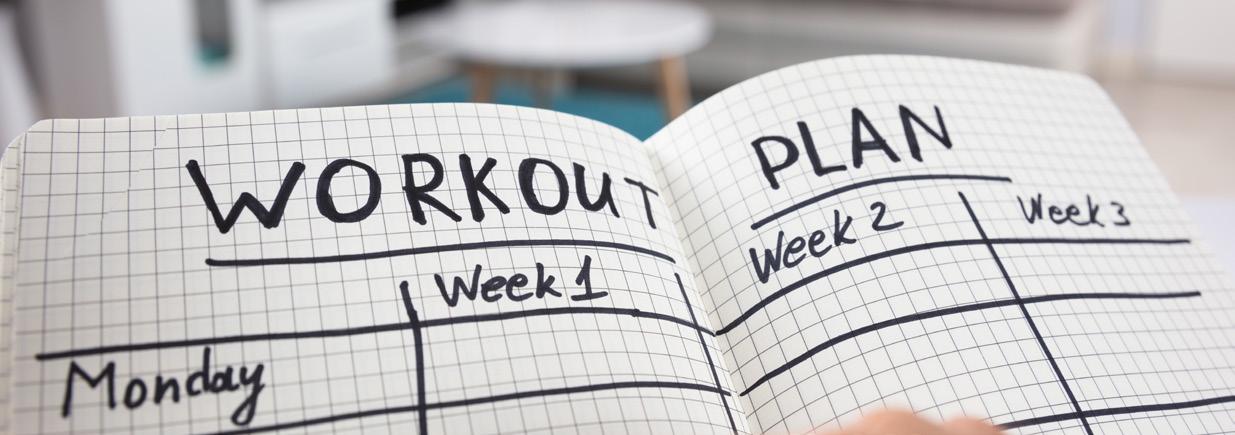 WORKOUT PLAN
Week 1 Week 2 Week 3
Monday